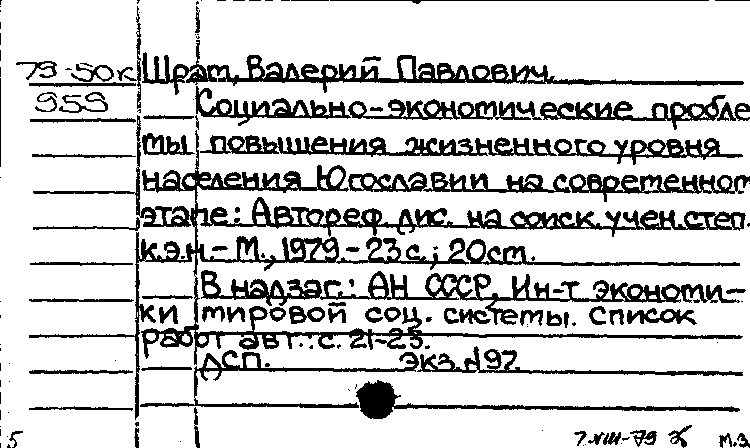 79-50к Шрат, Валерий Павлович.
959 Социально-экономические пробле
мы повышения жизненного уровня
населения Югославии на современном
этапе: Автореф. дис. на соиск. учен. степ.
к.э.н. - М., 1979. - 23 с.; 20 см.
В надзаг.: АН СССР, Ин-т экономи-
ки мировой соц. системы. Список
работ авт.: с. 21-23.
ДСП. экз. №97.
5 7.VIII-79 М.З